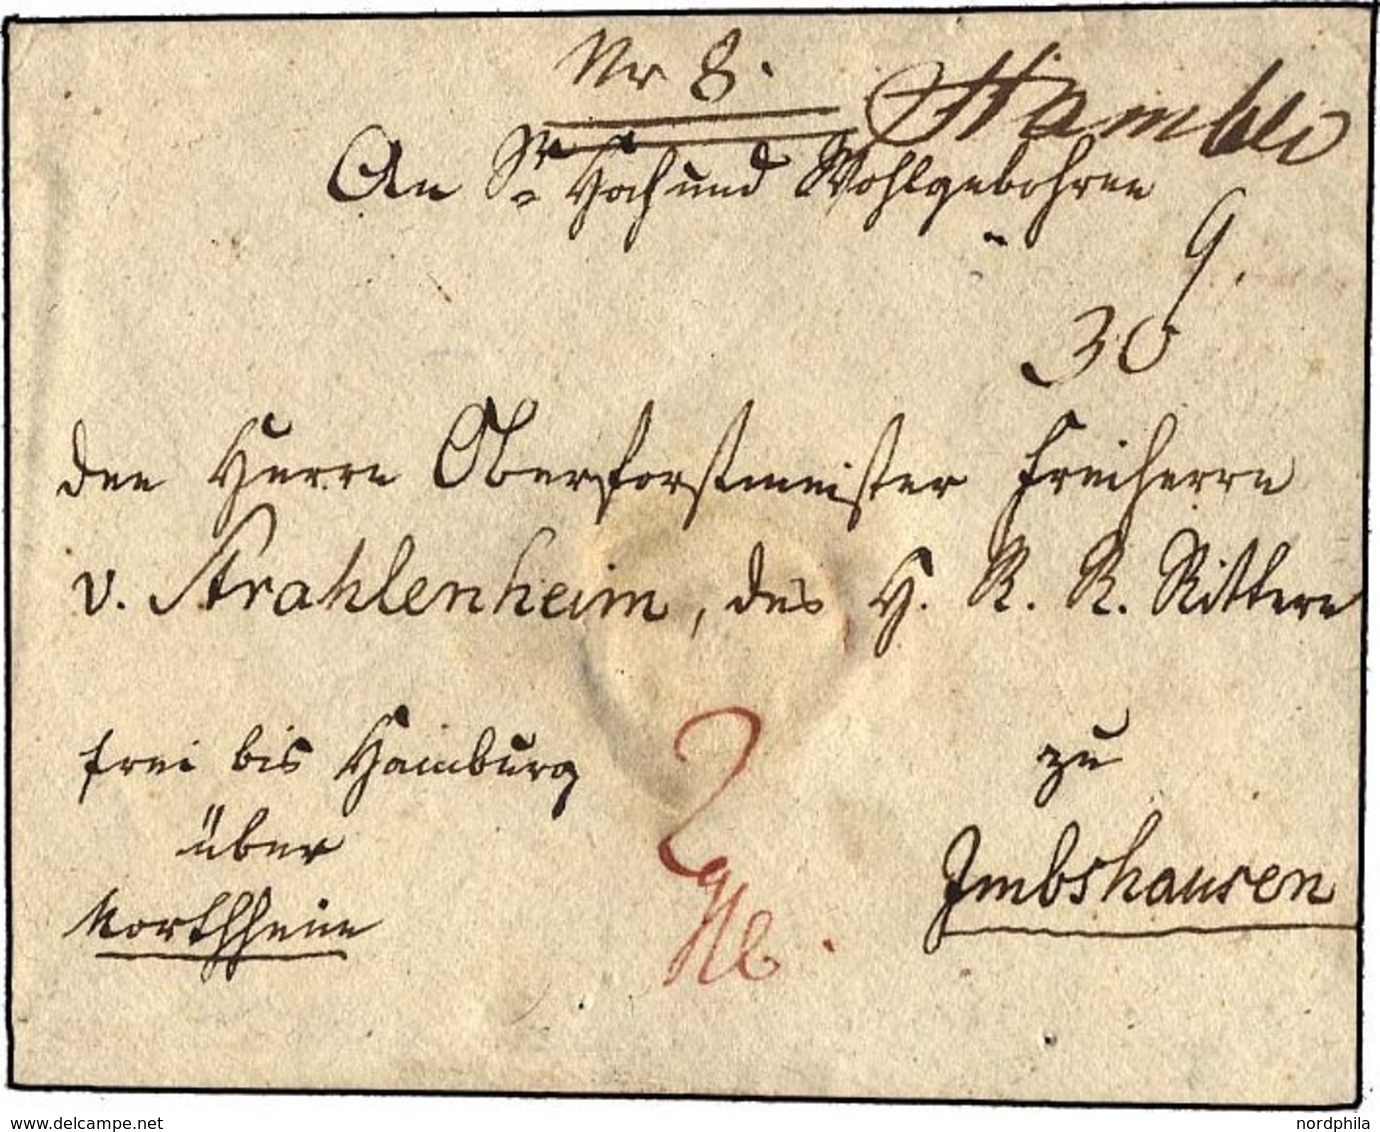 Nr 8.
Hamb
An Sr Hoch und Wohlgebohren
9.
30
den Herrn Oberforstmeister Freiherrn
v. Strahlenheim, des H. R. R. Rittern
frei bis Hamburg
über
Northheim
2
zu
Imbshausen
www.delcampe.net
nordphila